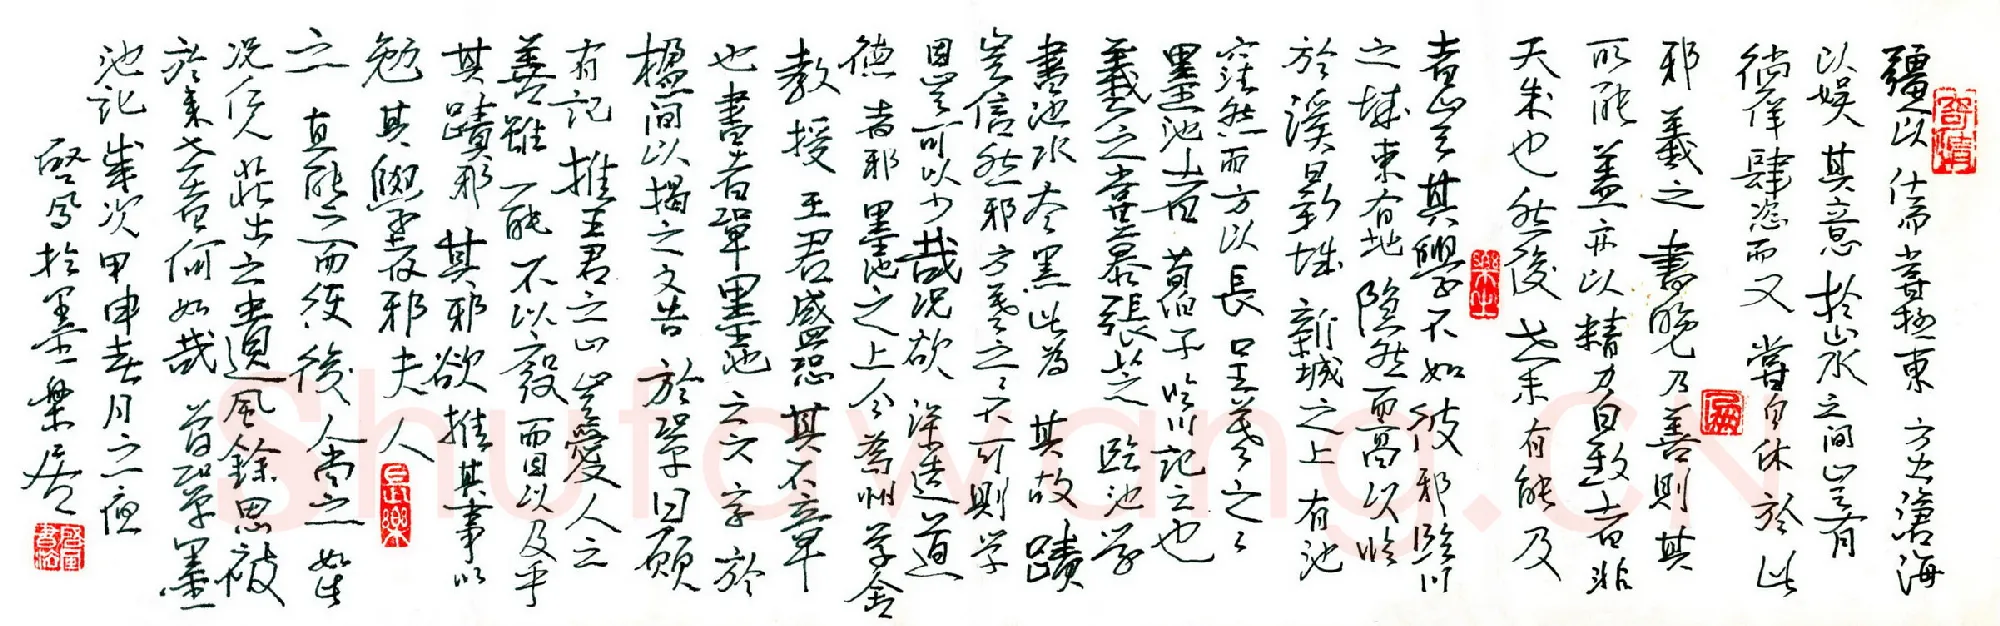 疆以仕而嘗極東方出滄海
以娱其意於山水之間豈有
徜徉肆恣而又嘗自休於此
邪羲之書晚乃善則其
所能蓋亦以精力自致者非
天成也然後世未有能及
者豈其學不如彼邪臨川
之城東有地隐然而高以临
於溪曰新城新城之上有池
窪然而方以長曰王羲之之
墨池者荀伯子临川记云也
羲之嘗慕張芝臨池学
書池水尽黑此為其故蹟
豈信然邪方羲之之不可則学
固豈可以少哉况欲深造道
德者邪墨池之上今為州学舍
教授王君盛恐其不章
也書晋軍墨池之六字於
楹間以揭之又告於鞏曰願
有記推王君之心豈愛人之
善雖一能不以廢而因以及乎
其蹟邪其邪欲推其事以
勉其學者邪夫人
之有能而使後人尚之如此
况仁人莊士之遺風餘思被
於来世者何如哉曾鞏墨
池記歲次甲申春月之夜
啓鳳於墨樂居
Shufawang.CN